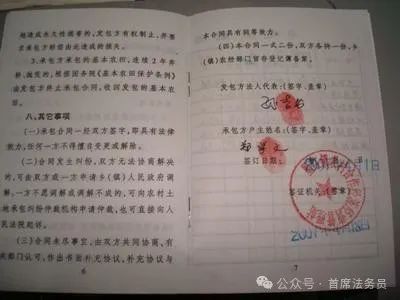 越造成永久性损害的,发包方有权制止,并要
求承包方赔偿由此造成的损失。
3.承包方承包的基本农田,连续2年弃
耕、抛荒的,根据国务院《基本农田保护条例》
由发包方终止承包合同,收回发包的基本农
田。
八、其它事项
(一)承包合同一经双方签字,即具有法律
效力,任何一方不得擅自变更或解除。
(二)合同发生纠纷,双方无法协商解决
的,可由双方或一方申请乡(镇)人民政府调
解,一方不愿调解或调解不成的,可向农村土
地承包纠纷仲裁机构申请仲裁,也可直接向人
民法院起诉。
(三)合同未尽事宜,由双方共同协商,有
关部门认可,作出书面补充协议,补充协议与
6
本合同具有同等效力。
(四)本合同一式二份,双方各持一份,乡
(镇)农经部门留存登记簿备案。
发包方法人代表:(签字、盖章)
承包方户主姓名:(签字、盖章)
签订日期:
签证机关:(签章)
7
公众号·首席法务员